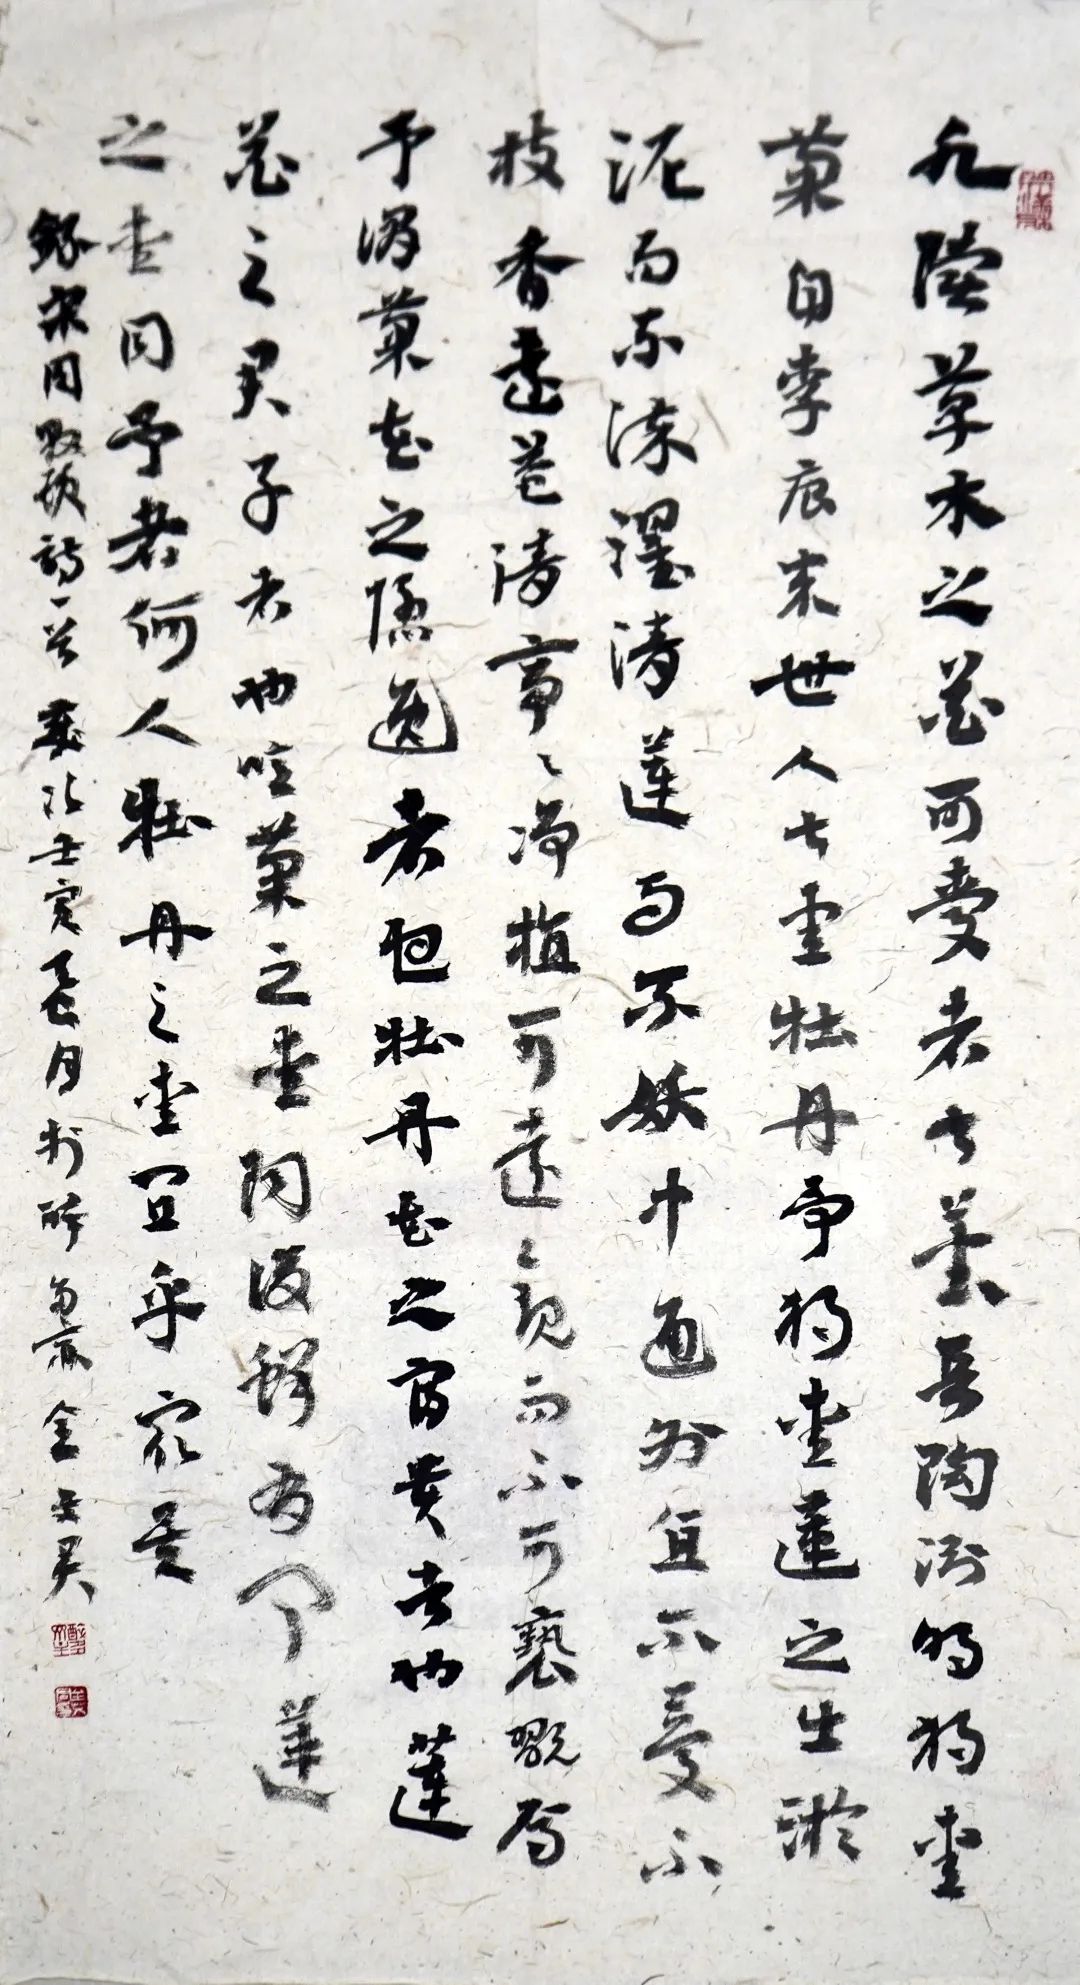 水陸草木之花可愛者甚蕃晉陶渊明獨愛
菊自李唐来世人甚愛牡丹予獨愛蓮之出淤
泥而不染濯清蓮而不妖中通外直不蔓不
枝香遠益清亭々净植可遠々觀而不可褻翫焉
予謂菊花之隱逸者也牡丹花之富貴者也蓮
花之君子者也噫菊之愛陶後鮮有聞蓮
之愛同予者何人牡丹之愛宜乎衆矣
錄宋周敦頤詩一首歲次壬寅夏月於醉齋金君